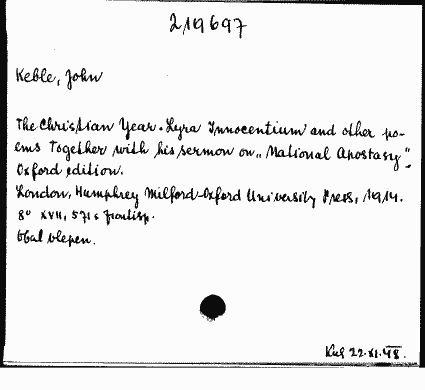 219697
Keble, John
The Christian Year. Lyra Innocentium and other po-
ems Together with his sermon on „National Apostasy".
Oxford edition.
London, Humphrey Milford-Oxford University Press, 1914.
8° XVII, 571 s frontisp.
Obal vlepen.
22.XI.48.